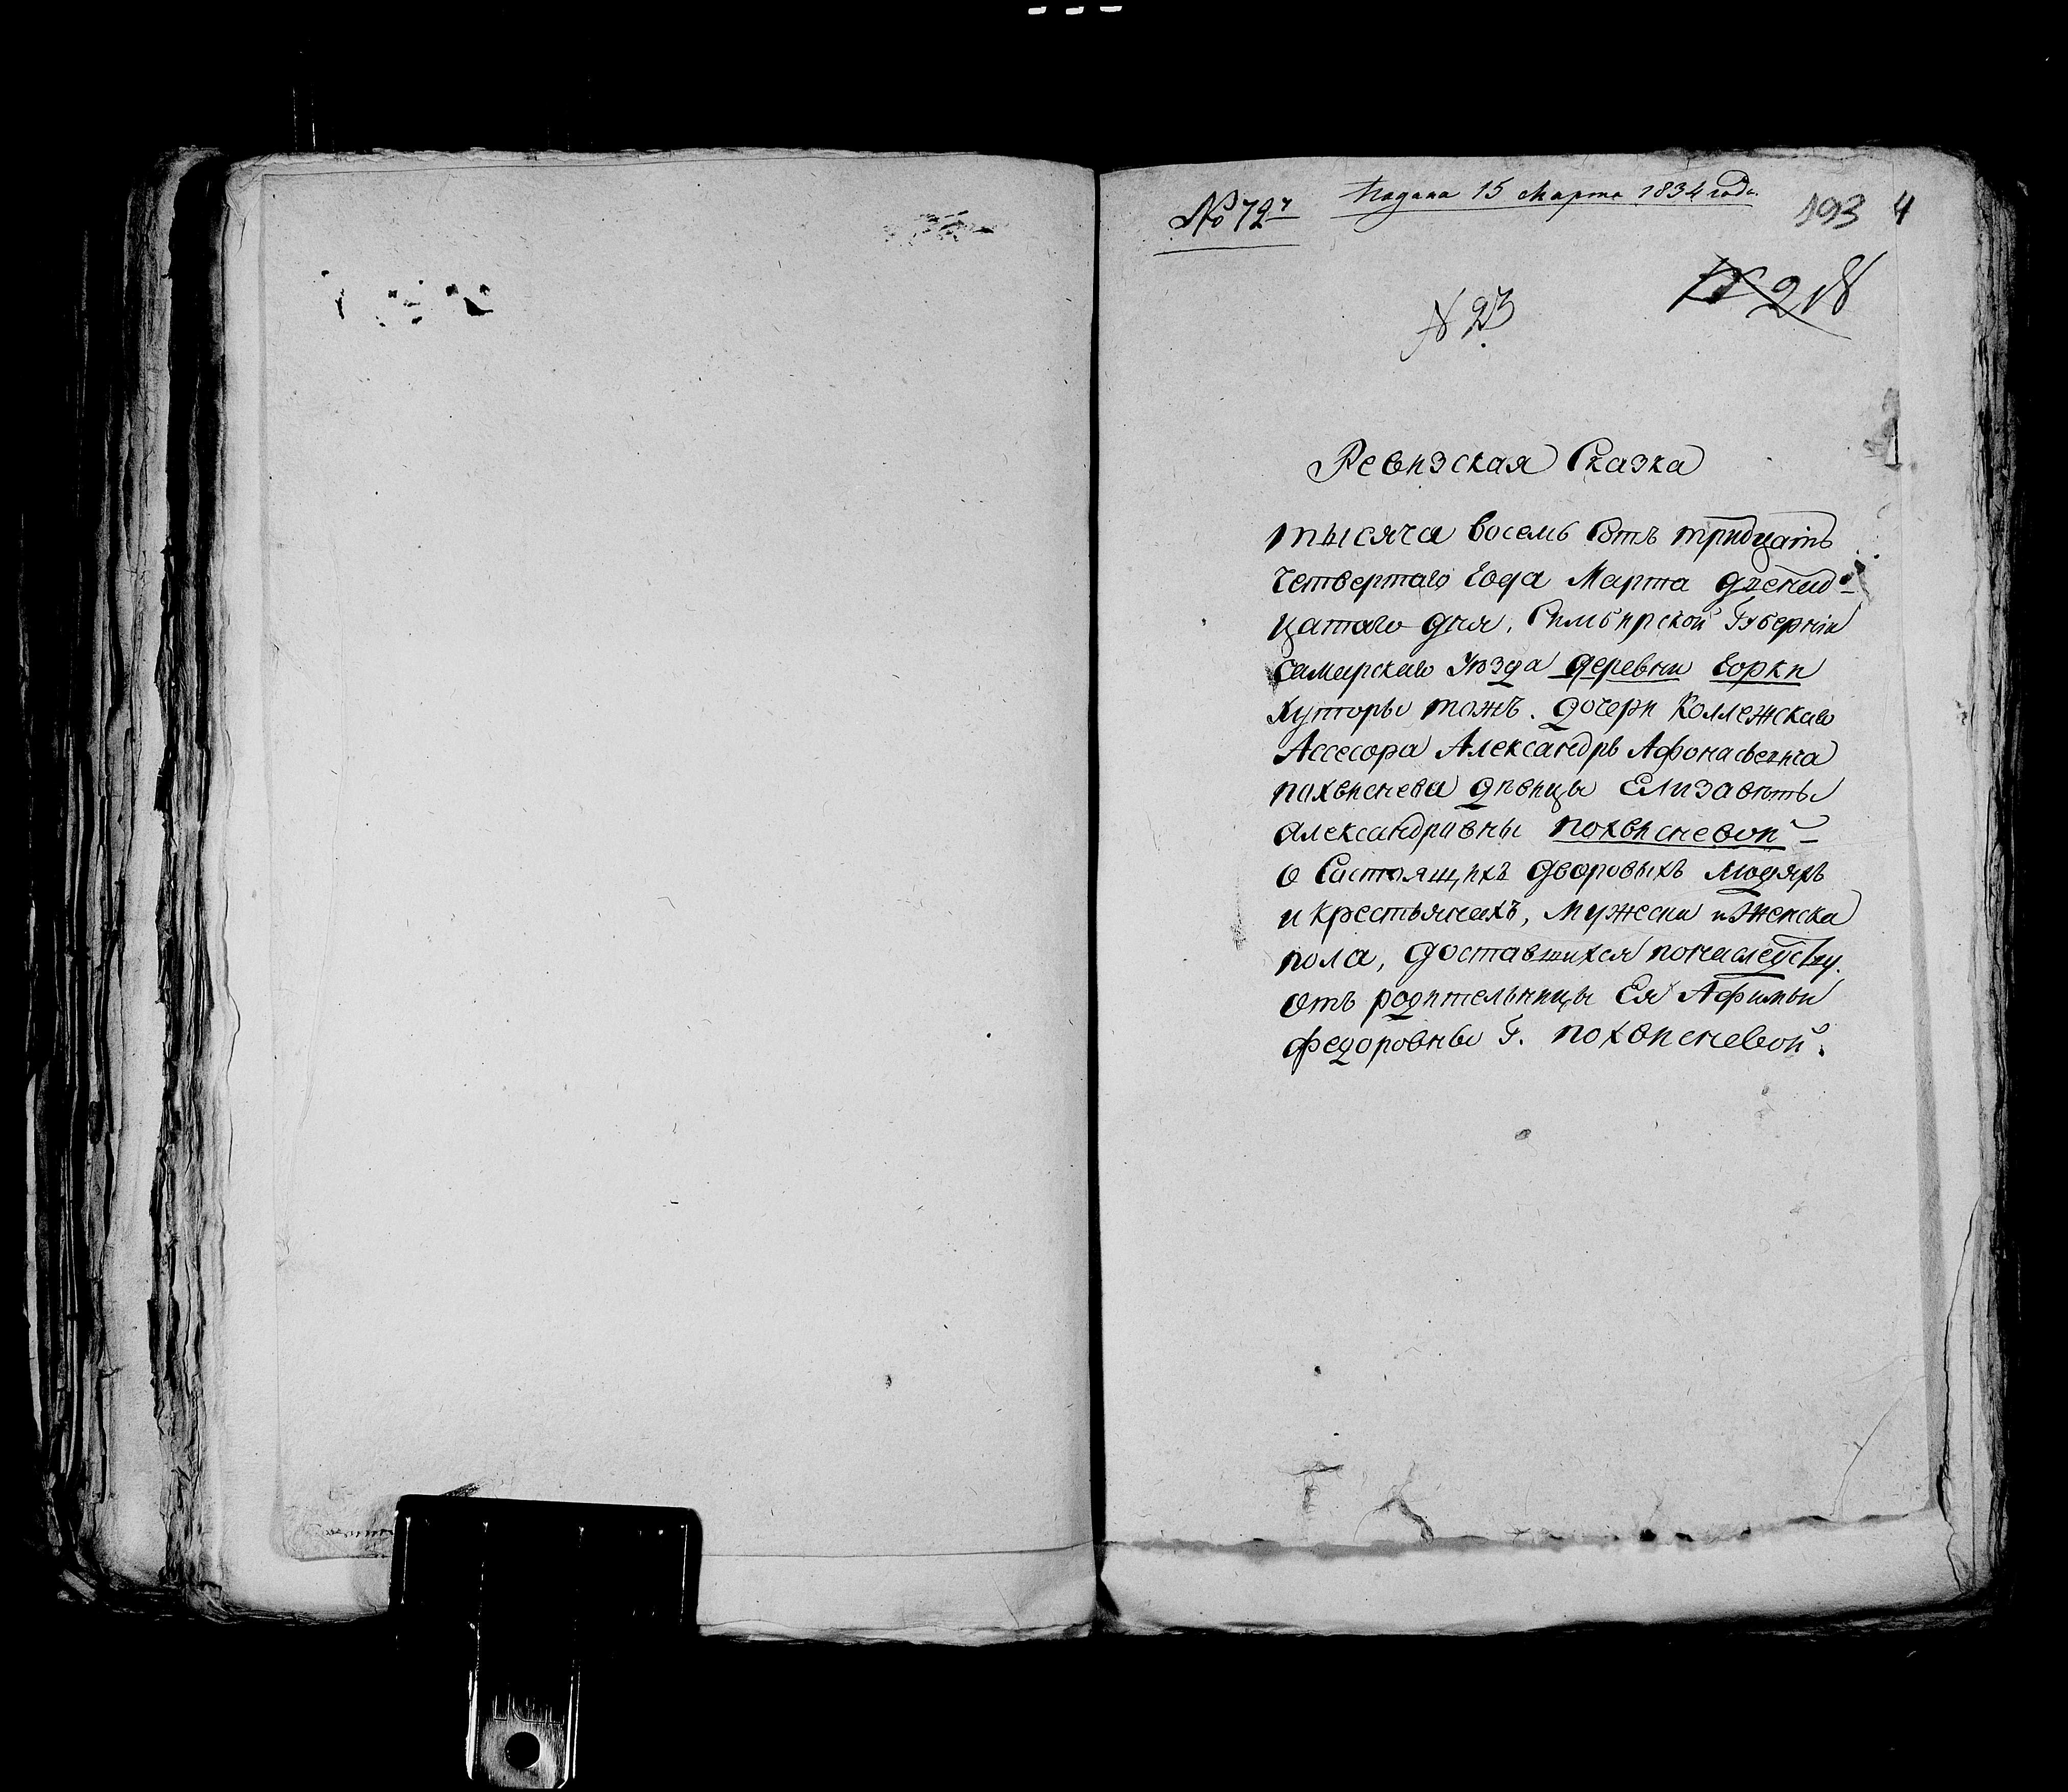 № 72й
Подана 15 Марта 1834 года.
193 4
№ 218
№ 23
Ревизская Сказка
тысяча восемь Сотъ тридцать
четвертаго Года Марта двенад-
цатаго дня, Симбирской Губерніи
Самарскаго Уѣзда деревни Горки
Хуторы тожъ. дочери Коллежскаго
Ассесора Александръ Афонасьевича
похвиснева дѣвицы Елизаветы
Александровны похвисневой
о Састоящихъ дворовыхъ людяхъ
и крестьянехъ, мужеска и женска
пола, доставшихся понаследству
отъ родительницы Ея Афимьи
федоровны Г. похвисневой.